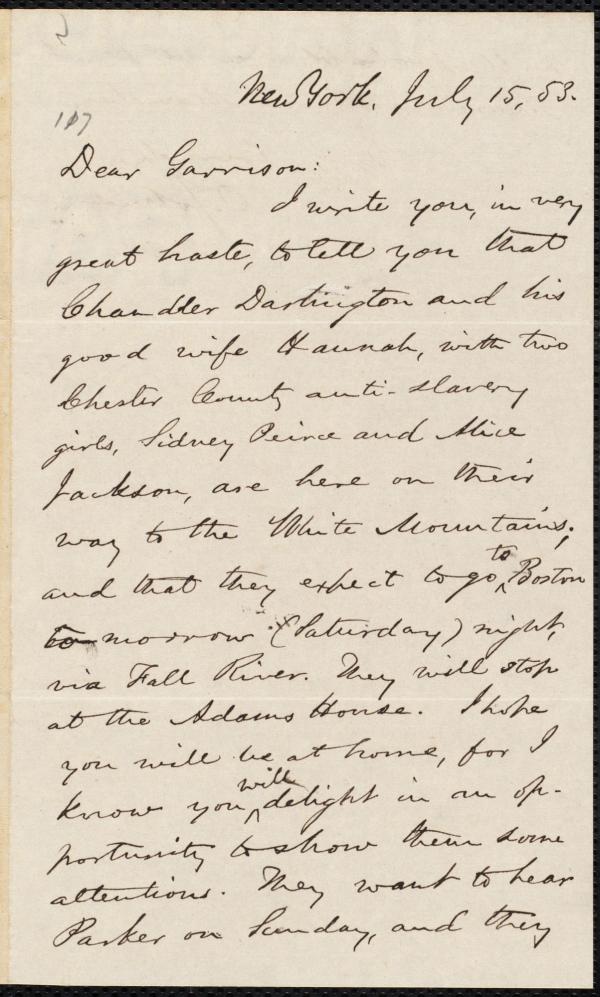 New York, July 15, 53.
107
Dear Garrison:
I write you, in very
great haste, to tell you that
Chandler Darlington and his
good wife Hannah, with two
Chester County anti-slavery
girls, Sidney Peirce and Alice
Jackson, are here on their
way to the White Mountains;
and that they expect to go to Boston
to-morrow (Saturday) night,
via Fall River. They will stop
at the Adams House. I hope
you will be at home, for I
know you will delight in an op-
portunity to show them some
attentions. They want to hear
Parker on Sunday, and they